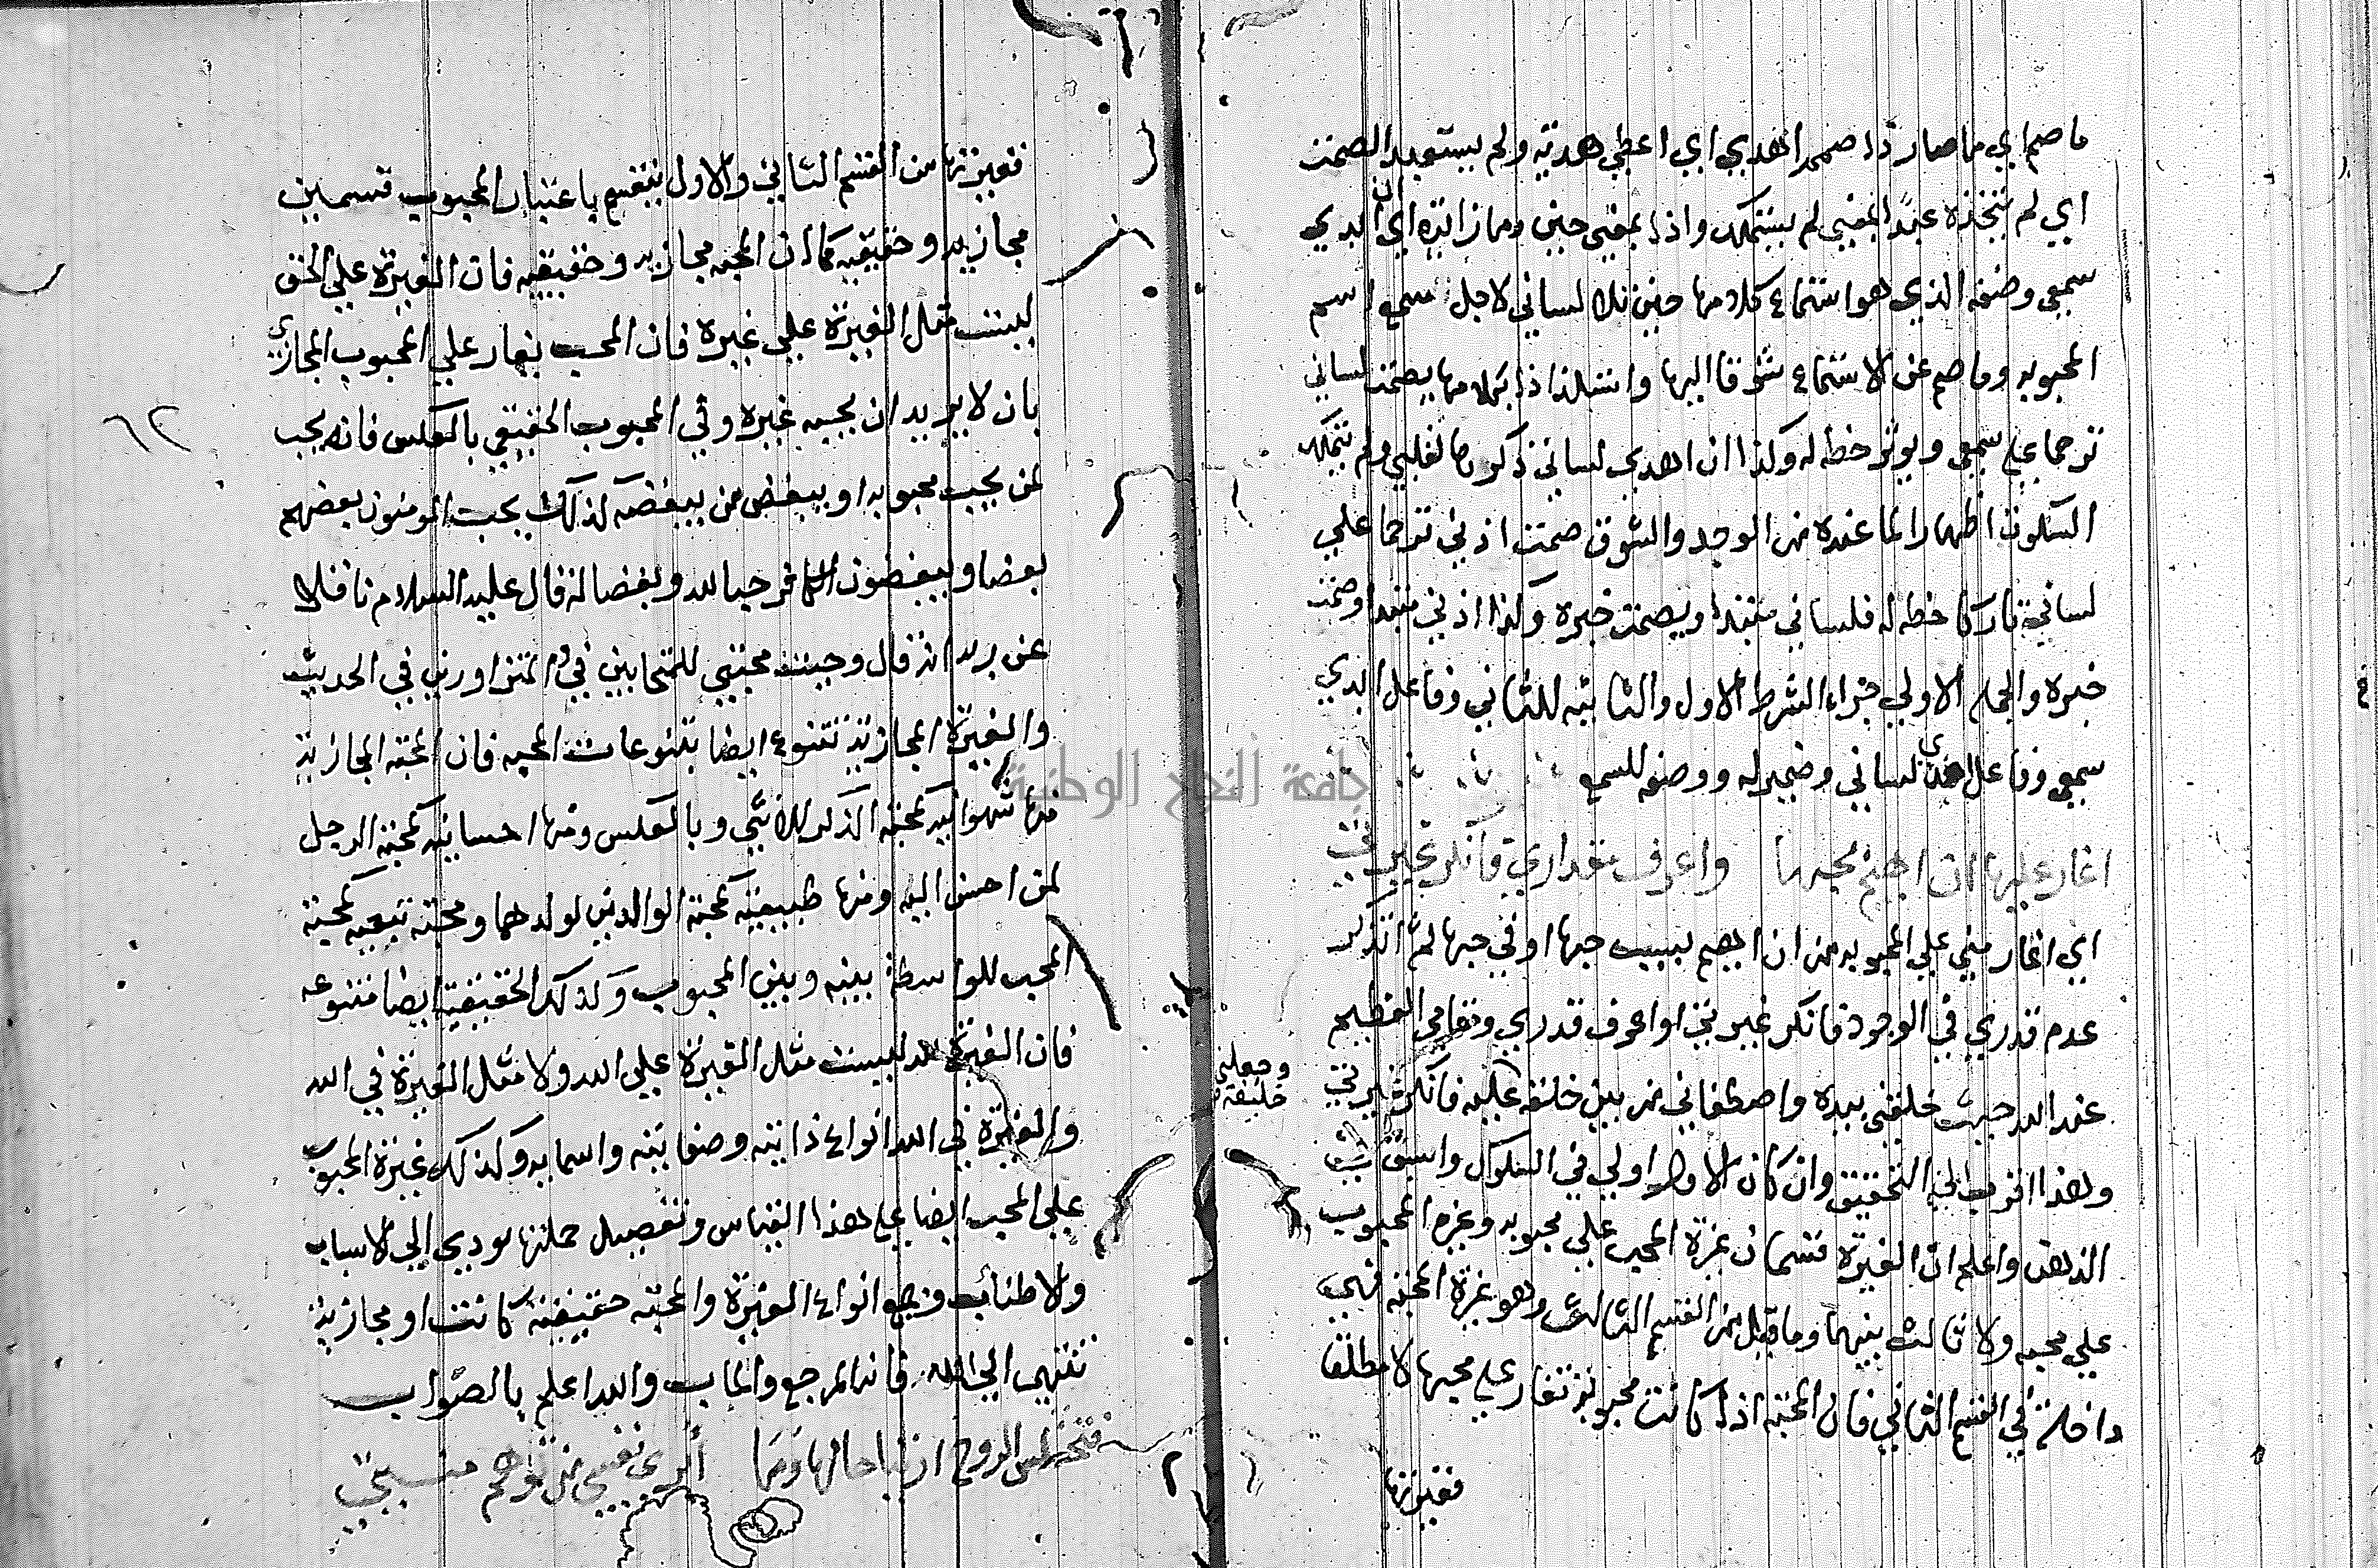 ما صم اي ما صار ذا صمم اهدي اي اعطي هديه ولم يستعبد الصمت
اي لم يتخذه عبدا بمعني لم يتملك واذا بمعني حين وما زائده اي ان ابدي
سمعي وصفه الذي هو استماع كلامها حين تلا لساني لاجل سمع اسم
المحبوبه وما صم عن الاستماع شوقا اليها واستلذاذا بكلامها يصمت لساني
ترحما علي سمعي ويوثر حظه له وكذا ان اهدي لساني ذكرها لقلبي ولم يتملك
السكوت اظهارا لما عنده من الوجد والشوق صمت اذني ترحما علي
لساني تاركا حظه له فلساني مبتدا ويصمت خبره وكذا اذني مبتدا وصمت
خبره والجمله الاولي جزاء الشرط الاول والثانيه للثاني وفاعل ابدي
سمعي وفاعل اهدي لساني وضمير له ووصفه للسمع
اغار عليها ان اهيم بحبها واعرف مقداري فانكر غيرتي
اي اغار مني علي المحبوبه من ان اهيم بسبب حبها او في حبها ثم اتذكر
عدم قدري في الوجود فانكر غيرتي او اعرف قدري ومقامي العظيم
عند الله حيث خلقني بيده واصطفاني من بين خلقه عليه فانكر غيرتي
وجعلني خليفة
وهذا اقرب الي التحقيق وان كان الاول اولي في السلوك واسبق
الذهن واعلم ان الغيرة قسمان غيرة المحب علي محبوبه وغيره المحبوب
علي محبه ولا ثالث بينهما وما قيل من القسم الثالث وهو غيرة المحبه فهي
داخلة في القسم الثاني فان المحبه اذا كانت محبوبة تغار علي محبها لا مطلقا
فغيرتها
فغيرتها من القسم الثاني والاول ينقسم باعتبار المحبوب قسمين
مجازيه وحقيقيه كما ان المحبه مجازيه وحقيقيه فان الغيرة علي الحق
ليست مثل الغيرة علي غيره فان المحب يغار علي المحبوب المجازي
٦٢
بان لا يريد ان يحبه غيره وفي المحبوب الحقيقي بالعكس فانه يحب
لمن يحب محبوبه او يبغض من يبغضه لذلك يحب المومنون بعضهم
بعضا ويبغضون الكافر حبا لله وبغضا له قال عليه السلام ناقلا
عن ربه انه قال وجبت محبتي للمتحابين في والمتزاورين في الحديث
والغيرة المجازية تتنوع ايضا بتنوعات المحبه فان المحبة المجازية
منها شهوانيه كمحبة الذكر للانثي وبالعكس ومنها احسانيه كمحبة الرجل
لمن احسن اليه ومنها طبيعيه كمحبة الوالدين لولدهما ومحبته تبعيه كمحبة
المحب للواسطة بينه وبين المحبوب وكذلك الحقيقية ايضا متنوعه
فان الغيرة لله ليست مثل الغيرة علي الله ولا مثل الغيرة في الله
والغيرة في الله انواع ذاتيه وصفاتيه واسمايه وكذلك غيرة المحبوب
علي المحب ايضا علي هذا القياس وتفصيل جملتها يودي الي الاسهاب
والاطناب وجميع انواع الغيرة والمحبه حقيقية كانت او مجازية
تنتهي الي الله فانه المرجع والماب والله اعلم بالصواب
فتختلس الروح ارتياحا لها وما ابري نفسي من توهم منيتي
جامعة النجاح الوطنية